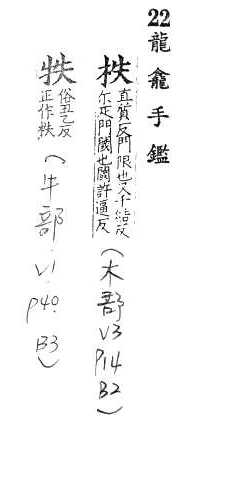 22龍龕手鑑
柣 直質反門限也又千結反
尒疋門閾也閾許逼反
(木部 V3 P14 B2)
㹤 俗丑乙反
正作柣
(牛部 V1 P40. B3)